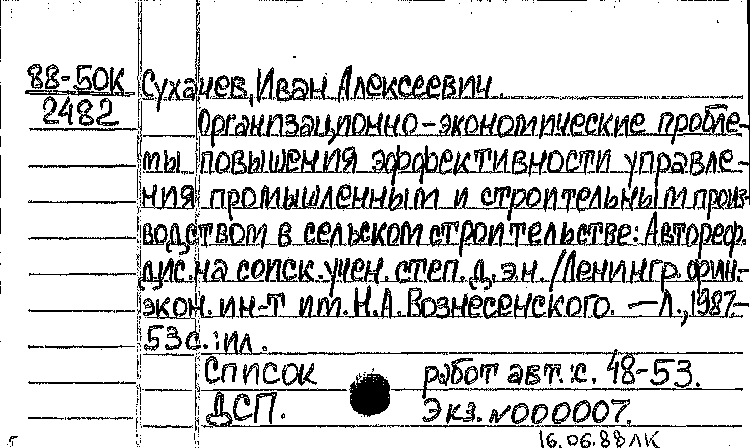 88-50К Сухачев, Иван Алексеевич.
2482
Организационно-экономические пробле-
мы повышения эффективности управле-
ния промышленным и строительным произ-
водством в сельском строительстве: Автореф.
дис. на соиск. учен. степ. д.э.н. /Ленингр. фин.-
экон. ин-т им. Н.А. Вознесенского. — Л., 1987.-
53 с.: ил.
Список работ авт.: с. 48-53.
ДСП. Экз. №000007.
16.06.88 ЛК